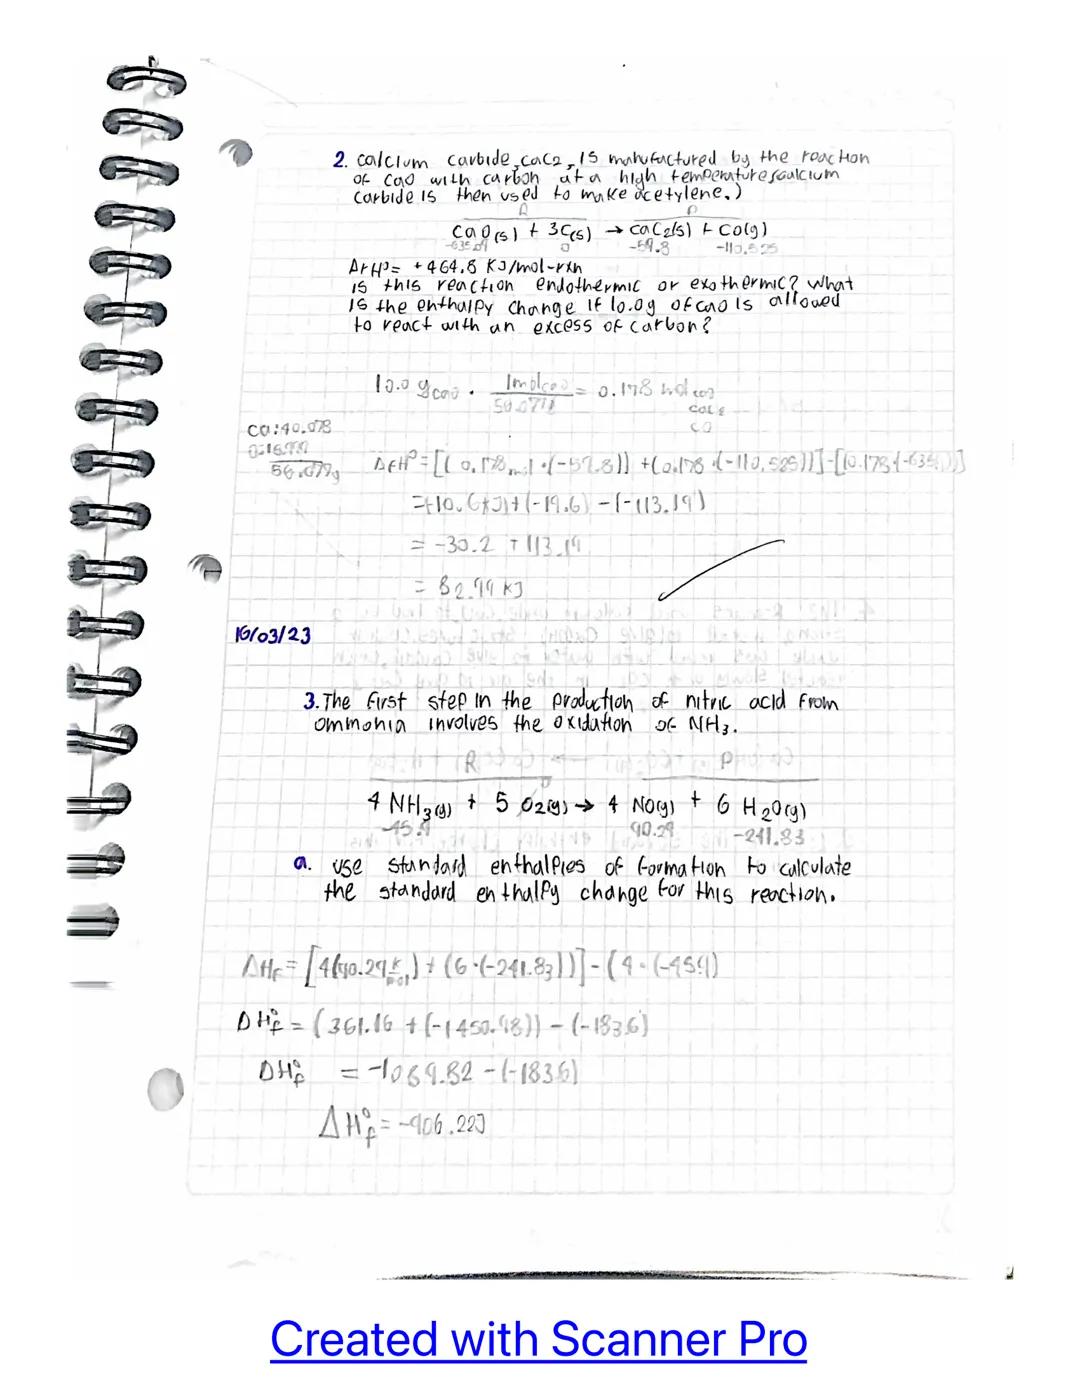 2. calcium carbide, CaC2, is manufactured by the reaction
of CaO with carbon at a high temperature (calcium
carbide is then used to make acetylene.)
R P
CaO(s) + 3C(s) → CaC2(s) + CO(g)
-635.09 0 -59.8 -110.525
ΔrH° = +464.8 KJ/mol-rxn
is this reaction endothermic or exothermic? what
is the enthalpy change if 10.0g of CaO is allowed
to react with an excess of carbon?
10.0 g CaO · 1mol CaO = 0.178 mol CaO
56.077g CaC2
Ca: 40.078 CO
O: 15.999
56.077g ΔfH° = [(0.178 mol · (-59.8)) + (0.178 · (-110.525))] - [(0.178 · (-635. ))]
= (-10.6 KJ) + (-19.6) - (-113.19)
= -30.2 + 113.19
= 82.99 KJ
16/03/23
3. The first step in the production of nitric acid from
ommonia involves the oxidation of NH3.
R P
4 NH3(g) + 5 O2(g) → 4 NO(g) + 6 H2O(g)
-45.9 0 90.29 -241.83
a. use standard enthalpies of formation to calculate
the standard enthalpy change for this reaction.
ΔHf = [4(90.29 K/mol) + (6·(-241.83))] - (4·(-45.9)
ΔH°f = (361.16 + (-1450.98)) - (-183.6)
ΔH°f = -1089.82 - (-183.6)
ΔH°f = -906.22J
Created with Scanner Pro